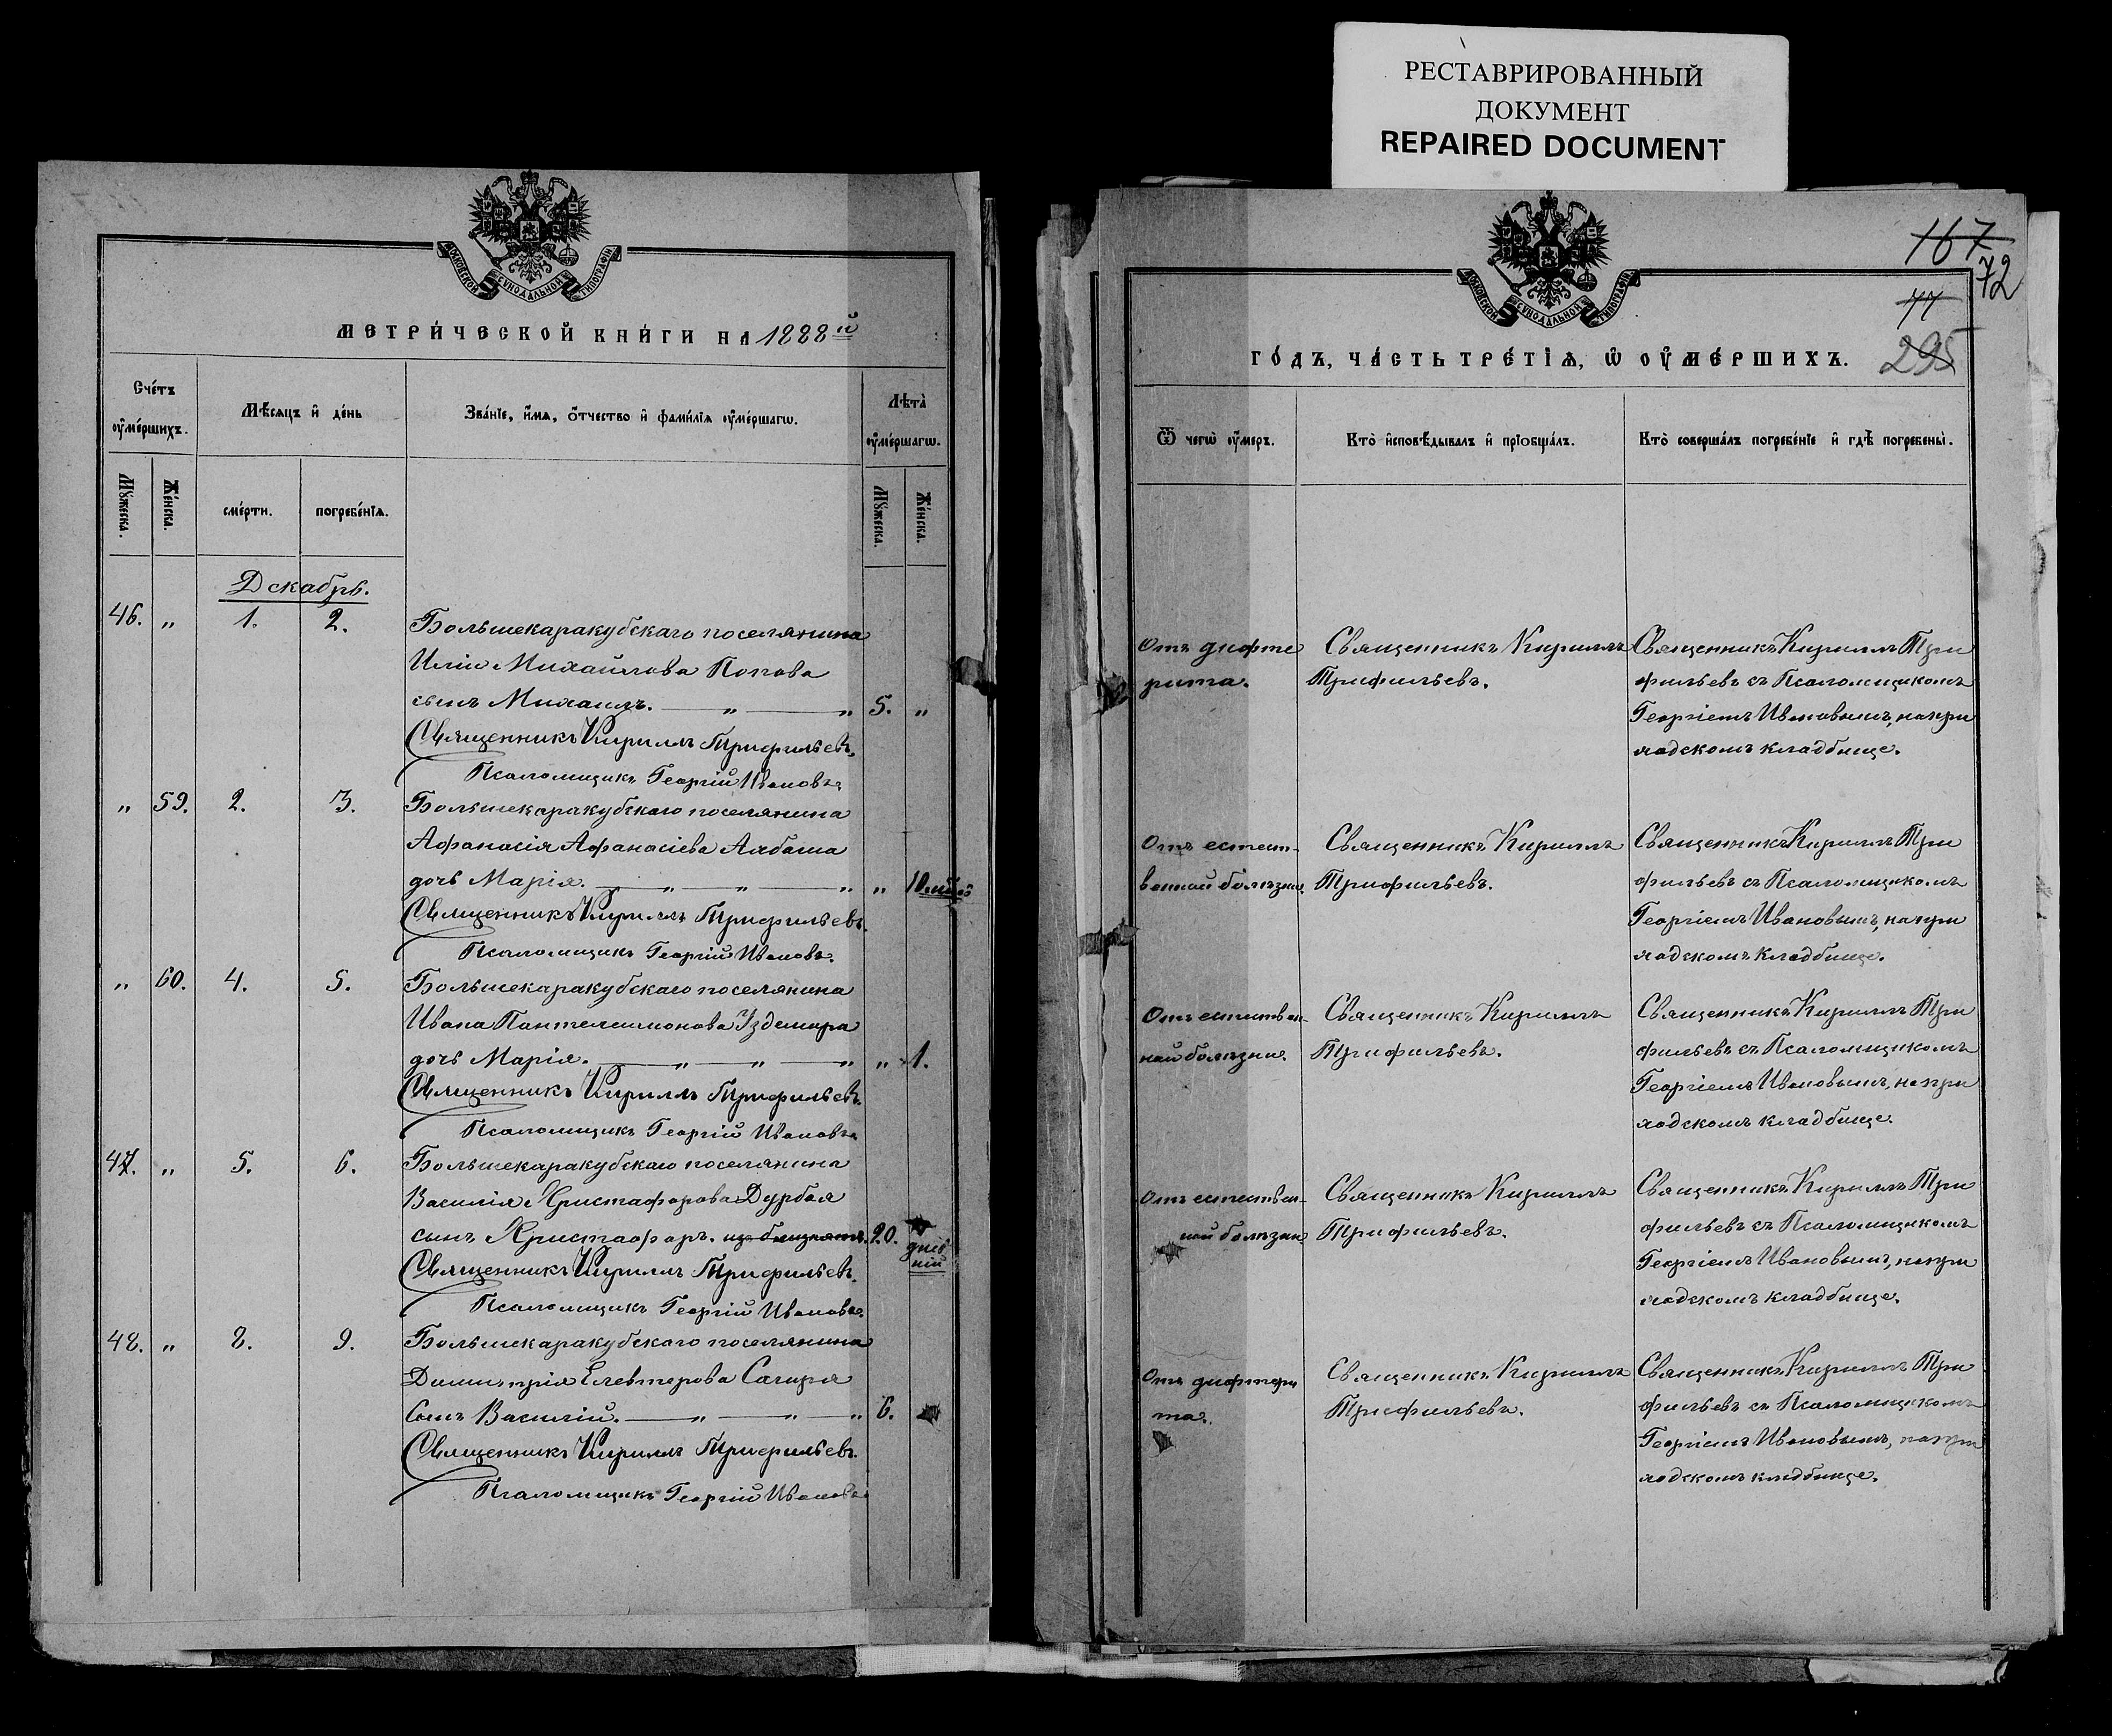 РЕСТАВРИРОВАННЫЙ
ДОКУМЕНТ
REPAIRED DOCUMENT
МОСКОВСКОЙ СѴНОДАЛЬНОЙ ТИПОГРАФІИ
МЕТРИ́ЧЕСКОЙ КНИ́ГИ НА 1888й
Сче́тъ ѹ҆ме́ршихъ.
Мѣ́сяцъ и҆ де́нь
Зва́нїе, и҆́мѧ, ѻ҆́тчество и҆ фами́лїѧ ѹ҆ме́ршагѡ.
Лѣта̀ ѹ҆ме́ршагѡ.
Мꙋ́жеска.
Же́нска.
сме́рти.
погребе́нїѧ.
Мꙋ́жеска.
Же́нска.
Декабрь.
46. „ 1. 2. Большекаракубскаго поселянина
Иліи Михайлова Попова
сынъ Михаилъ. — „ — „ 5. „
Священникъ Кириллъ Трифильевъ.
Псаломщикъ Георгій Ивановъ.
„ 59. 2. 3. Большекаракубскаго поселянина
Афанасія Афанасіева
дочь Марія. — „ — „ — „ „ 10.
Священникъ Кириллъ Трифильевъ.
Псаломщикъ Георгій Ивановъ.
„ 60. 4. 5. Большекаракубскаго поселянина
Ивана Пантелеимонова Уздемира
дочь Марія. — „ — „ — „ „ 1.
Священникъ Кириллъ Трифильевъ.
Псаломщикъ Георгій Ивановъ.
47. „ 5. 6. Большекаракубскаго поселянина
Василія Христафорова Дурбая
сынъ Христафоръ. изъ близнятъ. 20. дней
ній
Священникъ Кириллъ Трифильевъ.
Псаломщикъ Георгій Ивановъ.
48. „ 8. 9. Большекаракубскаго поселянина
Димитрія Елевтерова Сагиря
Сынъ Василій. — „ — „ — „ 6.
Священникъ Кириллъ Трифильевъ.
Псаломщикъ Георгій Ивановъ
МОСКОВСКОЙ СѴНОДАЛЬНОЙ ТИПОГРАФІИ
167
72
77
295
ГО́ДЪ, ЧА́СТЬ ТРЕ́ТЇѦ, Ѡ҆ ОУ҆МЕ́РШИХЪ.
Ѿ чегѡ̀ ѹ҆́меръ.
Кто̀ и҆сповѣ́дывалъ и҆ прїѻбща́лъ.
Кто̀ соверша́лъ погребе́нїе и҆ гдѣ̀ погребены̀.
Отъ дифте
рита.
Священникъ Кириллъ
Трифильевъ.
Священникъ Кириллъ Три
фильевъ съ Псаломщикомъ
Георгіемъ Ивановымъ, напри
ходскомъ кладбище.
Отъ естест-
венной болѣзни
Священникъ Кириллъ
Трифильевъ.
Священникъ Кириллъ Три
фильевъ съ Псаломщикомъ
Георгіемъ Ивановымъ, напри
ходскомъ кладбище.
Отъ естествен-
ной болѣзни.
Священникъ Кириллъ
Трифильевъ.
Священникъ Кириллъ Три
фильевъ съ Псаломщикомъ
Георгіемъ Ивановымъ, напри
ходскомъ кладбище.
Отъ естествен-
ной болѣзни
Священникъ Кириллъ
Трифильевъ.
Священникъ Кириллъ Три
фильевъ съ Псаломщикомъ
Георгіемъ Ивановымъ, напри
ходскомъ кладбище.
Отъ дифтери
та.
Священникъ Кириллъ
Трифильевъ.
Священникъ Кириллъ Три
фильевъ съ Псаломщикомъ
Георгіемъ Ивановымъ, напри
ходскомъ кладбище.